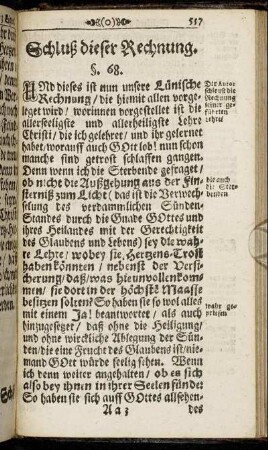 (o)
517
Schluß dieser Rechnung.
§. 68.
UNd dieses ist nun unsere Lünische
Rechnung / die hiemit allen vorge-
leget wird / worinnen vorgestellet ist die
allerseeligste und allerheiligste Lehre
Christi / die ich gelehret / und ihr gelernet
habet / worauff auch GOtt lob! nun schon
manche sind getrost schlaffen gangen.
Denn wenn ich die Sterbende gefraget /
ob nicht die Außziehung aus der Fin-
sterniß zum Licht / das ist die Verwech-
selung des verdammlichen Sünden-
Standes durch die Gnade GOttes und
ihres Heilandes mit der Gerechtigkeit
des Glaubens und Lebens) sey die wah-
re Lehre / wobey sie Hertzens-Trost
haben könnten / nebenst der Versi-
cherung / daß / was hie unvollenkom-
men / sie dort in der höchste Maasse
besitzen solten? So haben sie so wol alles
mit einem Ja! beantwortet / als auch
hinzugesetzet / daß ohne die Heiligung /
und ohne wirckliche Ablegung der Sün-
den / die eine Frucht des Glaubens ist / nie-
mand GOtt würde seelig sehen. Wenn
ich denn weiter angehalten / ob es sich
also bey ihnen in ihrer Seelen fünde:
So haben sie sich auff GOttes allsehen-
Aa 3
des
Der Autor
schliesst die
Rechnung
seiner ge-
führten
Lehre /
die auch
die Ster-
benden
wahr ge-
priesen